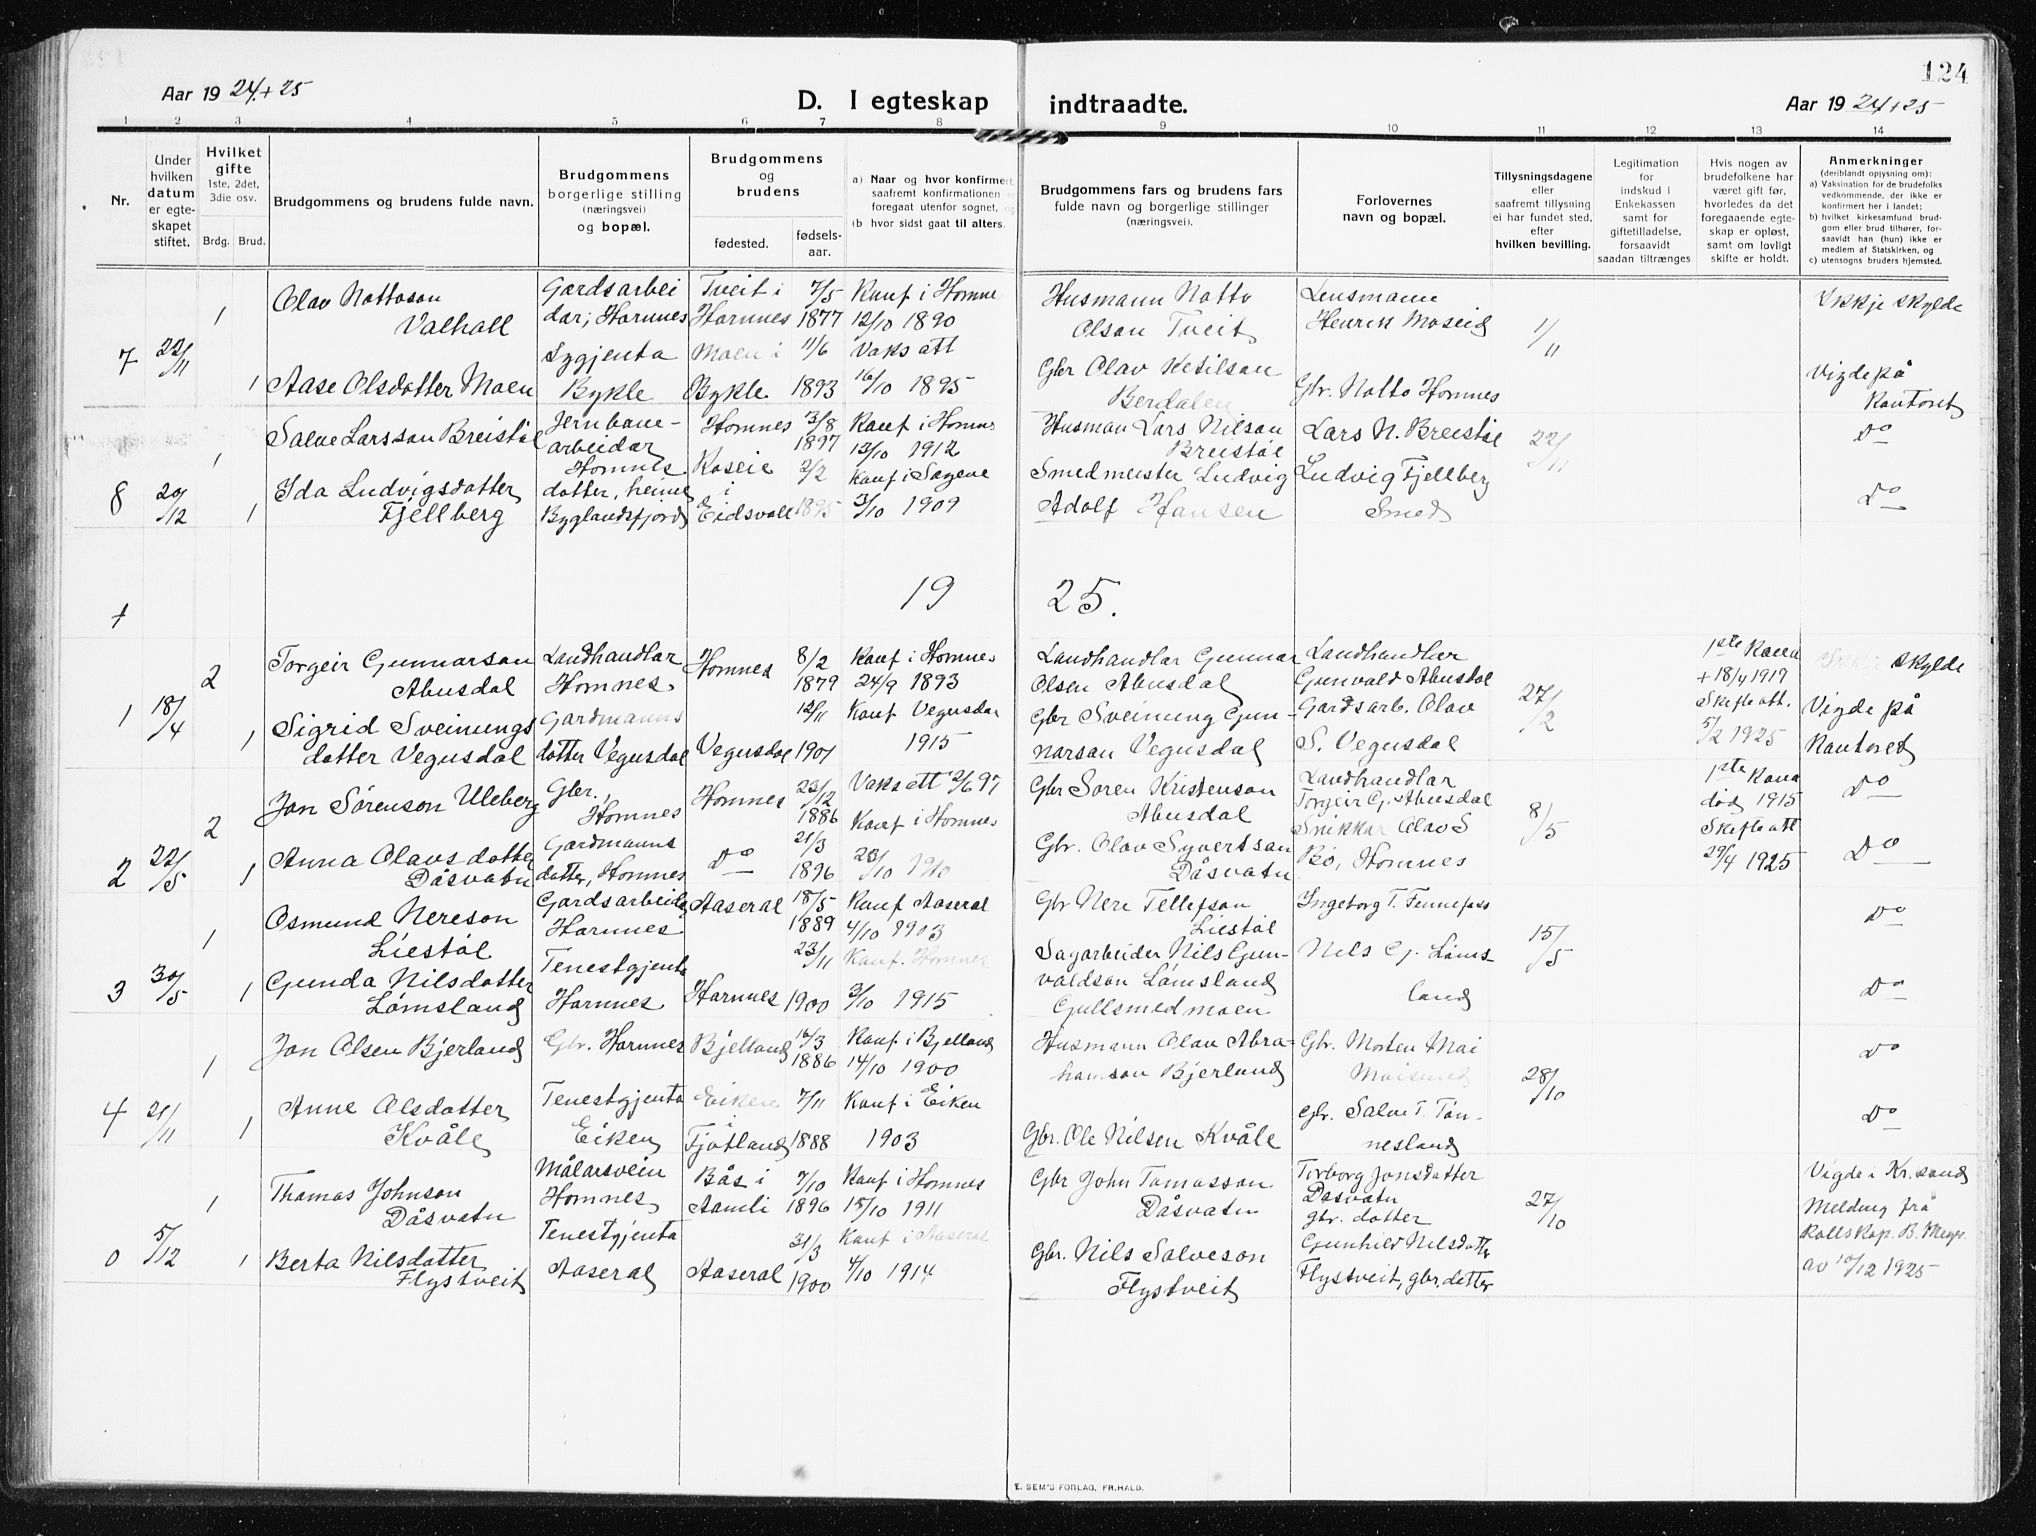 124
Aar 19 24 + 25
D. I egteskap indtraadte.
Aar 19 24 + 25
1 2 3 4 5 6 7 8 9 10 11 12 13 14
Nr.
Under hvilken datum er egteskapet stiftet.
Hvilket gifte 1ste, 2det, 3die osv.
Brdg. Brud.
Brudgommens og brudens fulde navn.
Brudgommens borgerlige stilling (næringsvei) og bopæl.
Brudgommens og brudens
fødested. fødsels-aar.
a) Naar og hvor konfirmert, saafremt konfirmationen foregaat utenfor sognet,
(b hvor sidst gaat til alters.
Brudgommens fars og brudens fars fulde navn og borgerlige stillinger (næringsvei).
Forlovernes navn og bopæl.
Tillysningsdagene eller saafremt tillysning ei har fundet sted, efter hvilken bevilling.
Legitimation for indskud i Enkekassen samt for giftetilladelse, forsaavidt saadan tiltrænges
Hvis nogen av brudefolkene har været gift før, hvorledes da det foregaaende egteskap er opløst, samt om lovligt skifte er holdt.
Anmerkninger (deriblandt opjysning om):
a) Vaksination for de brudefolks vedkommende, der ikke er konfirmert her i landet;
b) hvilket kirkesamfund brudgom eller brud tilhører, forsaavidt han (hun) ikke er medlem af Statskirken, og
c) utensogns bruders hjemsted.
7 22/11
1 Olav Nottoson Valhall
Gardsarbeidar, Hornnes
Tveit i Hornnes 7/5 1877
Konf i Hornne 12/10 1890
Husmann Notto Olson Tveit
Lensmann Henrik Moseid
1/11
Ikkje skylde
1 Aase Olsdotter Moen
Sygjenta Bykle
Moen i Bykle 11/6 1893
Vaks att 16/10 1895
Gbr Olav Ketilson Berdalen
Gbr. Notto Hornnes
Vigde på Kontoret
8 20/12
1 Salve Larsson Breistøl
Jernbanearbeidar Hornnes
Hornnes 3/8 1897
Konf i Hornnes 13/10 1912
Husman Lars Nilson Breistøl
Lars N. Breistøl
22/11
Do
1 Ida Ludvigsdotter Fjellberg
dotter, heime Byglandsfjord
i Eidsvoll 2/2 1895
Konf i Sagene 3/10 1909
Smedmeister Ludvig Adolf Hansen
Ludvig Fjellberg Smed
Do
19 25.
+
1 18/4
2 Torgeir Gunnarson Abusdal
Landhandlar Hornnes
Hornnes 8/2 1879
Konf i Hornnes 24/9 1893
Landhandlar Gunnar Olsen Abusdal
Landhandler Gunvald Abusdal
27/2
1ste Kona + 18/4 1917
skylde
1 Sigrid Sveinungsdotter Vegusdal
Gardmannsdotter Vegusdal
Vegusdal 12/11 1901
Konf Vegusdal 1915
Gbr Sveinung Gunnarson Vegusdal
Gardsarb. Olav S. Vegusdal
Skifte att. 5/2 1925
Vigde på Kontoret
2 22/5
2 Jon Sørenson Uleberg
Gbr., Hornnes
Hornnes 23/12 1886
Vaks att 2/6 97
Gbr Søren Kristenson Abusdal
Landhandlar Torgeir G. Abusdal
8/5
1ste Kona død 1915
Do
1 Anna Olavsdotter Dåsvatn
Gardmannsdotter, Hornnes
Do 21/3 1896
Konf i Hornnes 23/10 1910
Gbr. Olav Syvertson Dåsvatn
Snikkar Olav S Bø, Hornnes
Skifte att 29/4 1925
Do
3 30/5
1 Osmund Nereson Liestøl
Gardsarbeidar Hornnes
Aaseral 18/5 1889
Konf Aaseral 4/10 1903
Gbr Nere Tellefson Liestøl
Ingeborg T. Fennefoss
15/5
Do
1 Gunda Nilsdotter Lømsland
Tenestgjenta Hornnes
Hornnes 23/11 1900
Konf. Hornnes 3/10 1915
Sagarbeider Nils Gunvaldson Lømsland Gullsmedmoen
Nils G. Lømsland
Do
4 21/11
1 Jon Olsen Bjerland
Gbr. Hornnes
Bjelland 16/3 1886
Konf i Bjelland 14/10 1900
Husmann Olav Abrahamson Bjerland
Gbr. Morten Moi
28/10
Do
1 Anne Olsdotter Kvåle
Tenestgjenta Eiken
Eiken i Fjotland 7/11 1888
Konf i Eiken 1903
Gbr. Ole Nilsen Kvåle
Gbr. Salve T. Tønnesland
Do
0 5/12
1 Thomas Johnson Dåsvatn
Målarsvein Hornnes
Bås i Aamli 7/10 1896
Konf i Hornnes 15/10 1911
Gbr John Tomasson Dåsvatn
Torborg Jonsdatter Dåsvatn gbr. dotter
27/10
Vigde i Kr.sand
1 Berta Nilsdotter Flystveit
Tenestgjenta Aaseral
Aaseral 31/3 1900
Konf i Aaseral 4/10 1914
Gbr. Nils Salveson Flystveit
Gunhild Nilsdotter Flystveit, gbr.dotter
Melding frå av 10/12 1925
E. SEM'S FORLAG, FR.HALD.